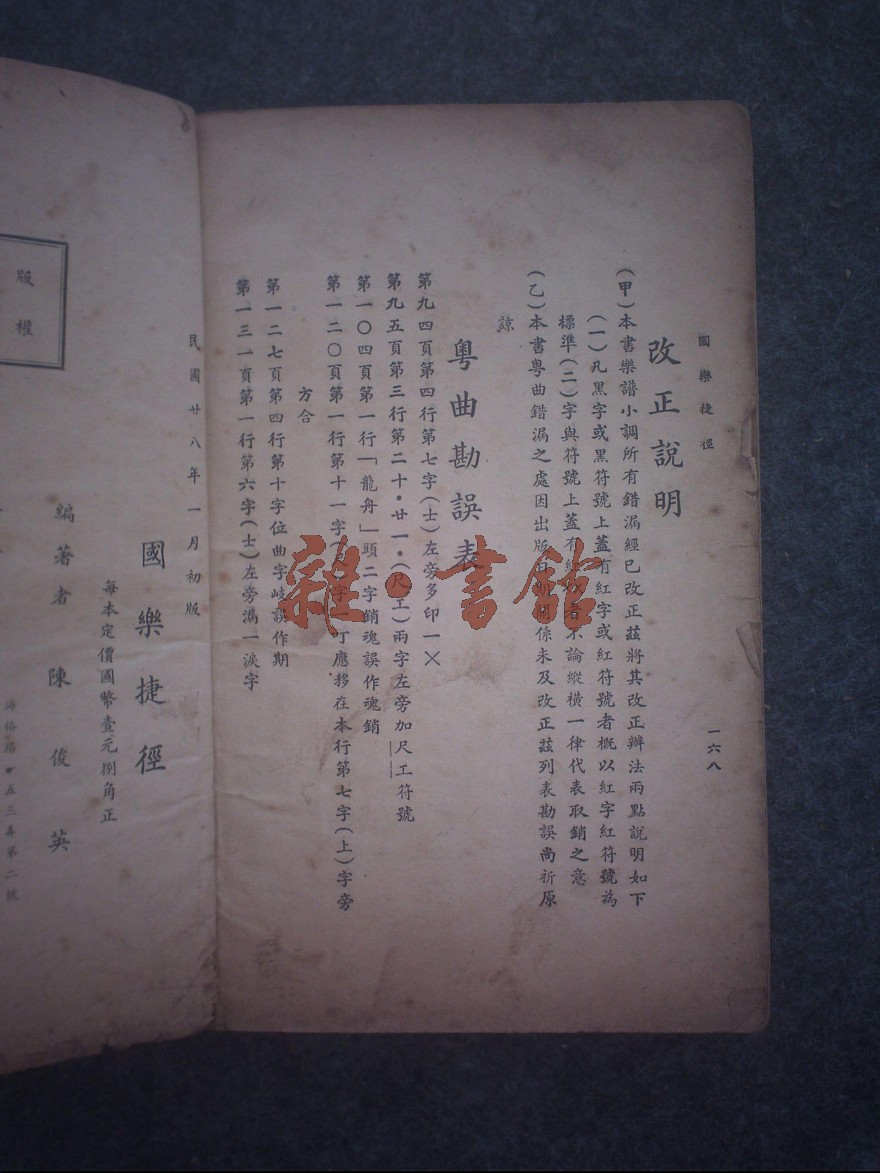 國樂捷徑
一六八
改正說明
(甲)本書樂譜小調所有錯漏經已改正茲將其改正辦法兩點說明如下
(一)凡黑字或黑符號上蓋有紅字或紅符號者概以紅字紅符號為
標準(二)字與符號上蓋有紅 者不論縱橫一律代表取銷之意
(乙)本書粵曲錯漏之處因出版 係未及改正茲列表勘誤尚祈原
諒
粵曲勘誤表
第九四頁第四行第七字(士)左旁多印一×
第九五頁第三行第二十·廿一·(尺工)兩字左旁加尺工符號
第一〇四頁第一行「龍舟」頭二字銷魂誤作魂銷
第一二〇頁第一行第十一字(尺)字一叮應移在本行第七字(上)字旁
方合
第一二七頁第四行第十字位曲字岐誤作期
第一三一頁第一行第六字(士)左旁漏一淚字
民國廿八年一月初版
國樂捷徑
每本定價國幣壹元捌角正
編著者 陳俊英
五三年第二號
版權
雜·書館